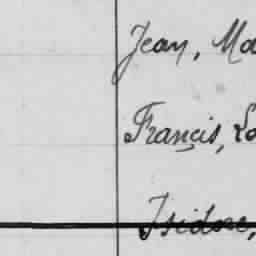 Jean, Ma
Francis, Lo
Isidore,